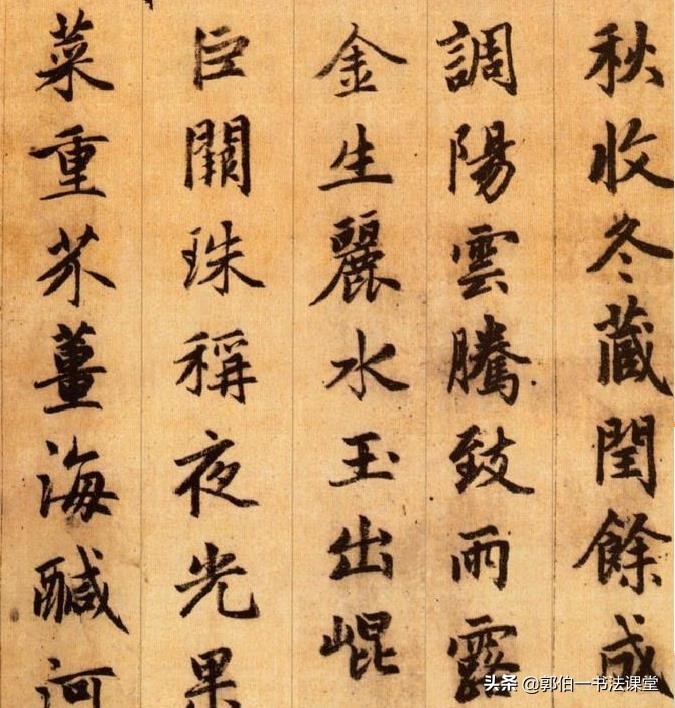 秋收冬藏閏餘成
調陽雲騰致雨露
金生麗水玉出崐
巨闕珠稱夜光果
菜重芥薑海醎河
头条 @郭伯一书法课堂